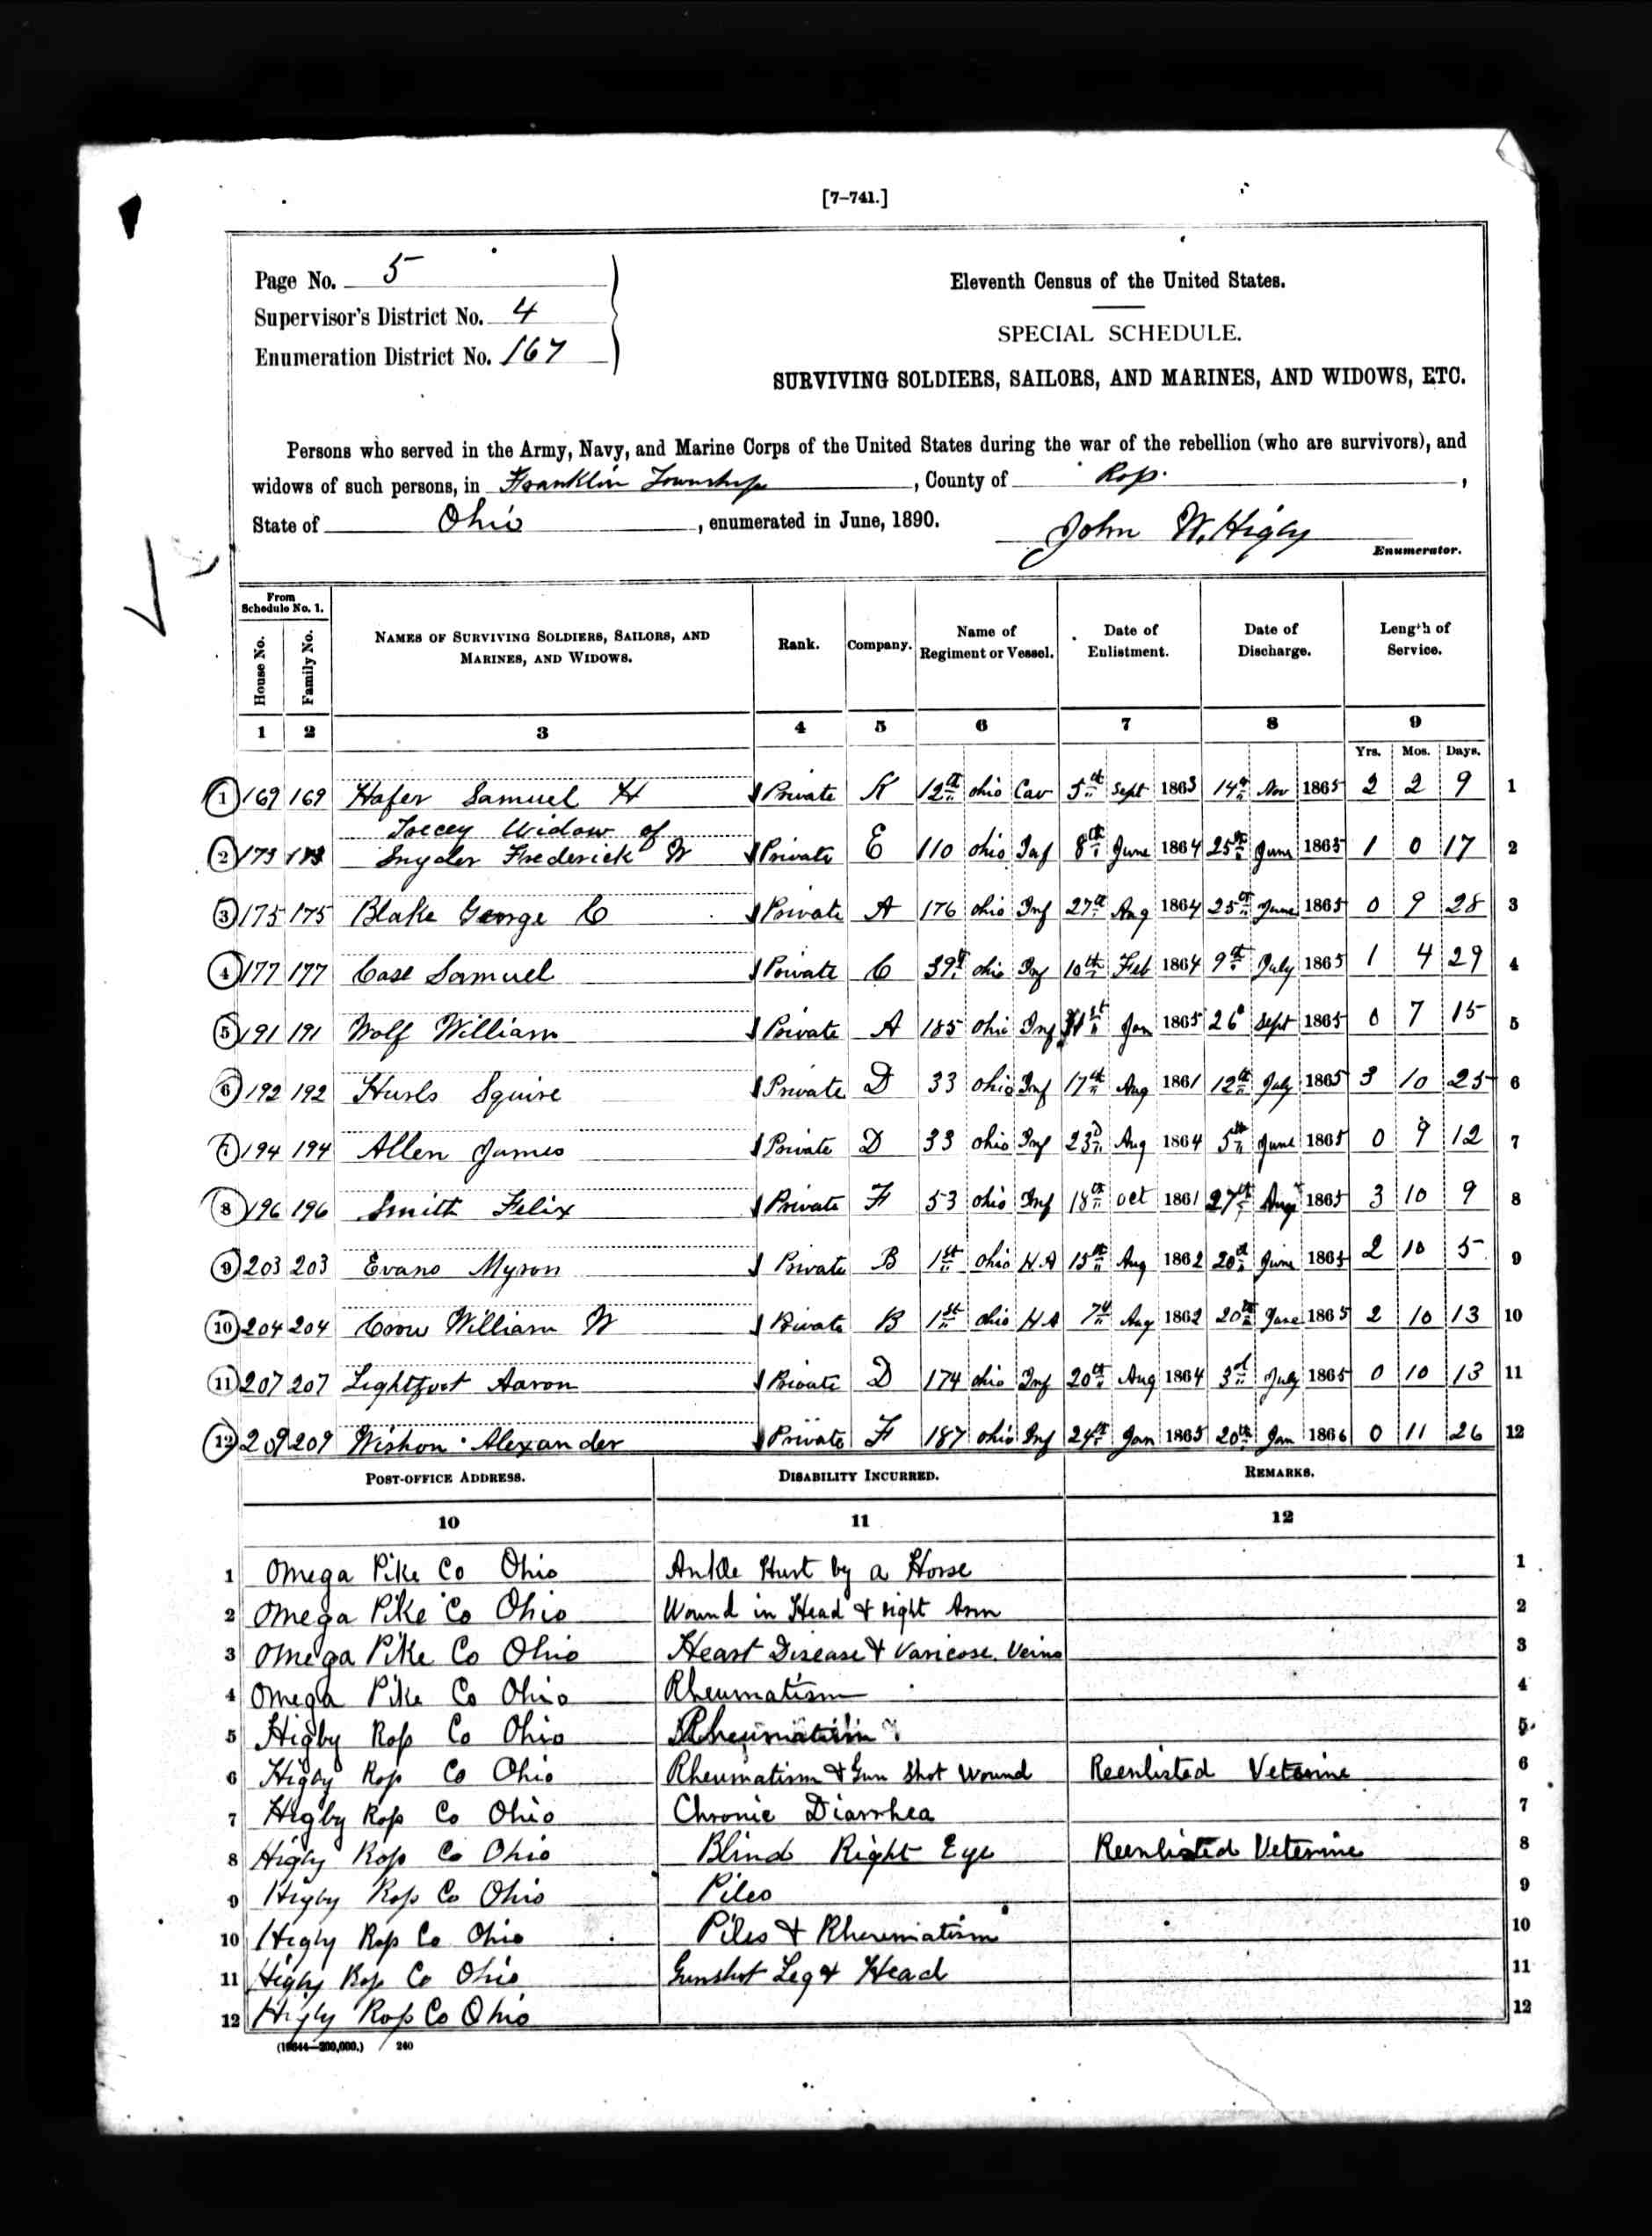 [7-741.]
Page No. 5
Supervisor's District No. 4
Enumeration District No. 167
Eleventh Census of the United States.
SPECIAL SCHEDULE.
SURVIVING SOLDIERS, SAILORS, AND MARINES, AND WIDOWS, ETC.
Persons who served in the Army, Navy, and Marine Corps of the United States during the war of the rebellion (who are survivors), and
widows of such persons, in Franklin Township, County of Ross,
State of Ohio, enumerated in June, 1890.
John W. Higby
Enumerator.
From Schedule No. 1.
House No. Family No. NAMES OF SURVIVING SOLDIERS, SAILORS, AND MARINES, AND WIDOWS. Rank. Company. Name of Regiment or Vessel. Date of Enlistment. Date of Discharge. Length of Service.
1 2 3 4 5 6 7 8 9
Yrs. Mos. Days.
1 169 169 Hafer Samuel H Private K 12th Ohio Cav 5th Sept 1863 14th Nov 1865 2 2 9 1
Widow of
2 173 173 Snyder Frederick W Private E 110 Ohio Inf 8th June 1864 25th June 1865 1 0 17 2
3 175 175 Blake George C Private A 176 Ohio Inf 27th Aug 1864 25th June 1865 0 9 28 3
4 177 177 Case Samuel Private C 39th Ohio Inf 10th Feb 1864 9th July 1865 1 4 29 4
5 191 191 Wolf William Private A 185 Ohio Inf Jan 1865 26 Sept 1865 0 7 15 5
6 192 192 Hurls Squire Private D 33 Ohio Inf 17th Aug 1861 12th July 1865 3 10 25 6
7 194 194 Allen James Private D 33 Ohio Inf 23D Aug 1864 5th June 1865 0 9 12 7
8 196 196 Smith Felix Private F 53 Ohio Inf 18th Oct 1861 27th Aug 1865 3 10 9 8
9 203 203 Evans Myron Private B 1st Ohio H A 15th Aug 1862 20th June 1865 2 10 5 9
10 204 204 Crow William W Private B 1st Ohio H A 7th Aug 1862 20th June 1865 2 10 13 10
11 207 207 Lightfoot Aaron Private D 174 Ohio Inf 20th Aug 1864 3d July 1865 0 10 13 11
12 209 209 Wishon Alexander Private F 187 Ohio Inf 24th Jan 1865 20th Jan 1866 0 11 26 12
POST-OFFICE ADDRESS. DISABILITY INCURRED. REMARKS.
10 11 12
1 Omega Pike Co Ohio Ankle Hurt by a Horse 1
2 Omega Pike Co Ohio Wound in Head & right Arm 2
3 Omega Pike Co Ohio Heart Disease & Varicose Veins 3
4 Omega Pike Co Ohio Rheumatism 4
5 Higby Ross Co Ohio Rheumatism 5
6 Higby Ross Co Ohio Rheumatism & Gun Shot Wound Reenlisted Veterine 6
7 Higby Ross Co Ohio Chronic Diarrhea 7
8 Higby Ross Co Ohio Blind Right Eye Reenlisted Veterine 8
9 Higby Ross Co Ohio Piles 9
10 Higby Ross Co Ohio Piles & Rheumatism 10
11 Higby Ross Co Ohio Gunshot Leg & Head 11
12 Higby Ross Co Ohio 12
240